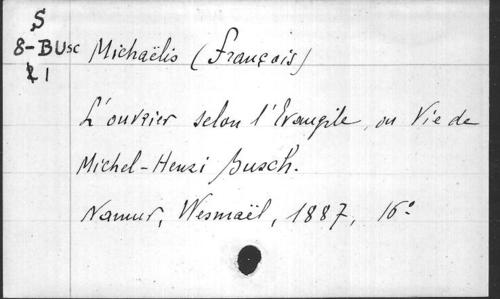 S
8-BUSC Michaëlis (François)
21
L'ouvrier selon l'Evangile, ou Vie de
Michel-Henri Busch.
Namur, Wesmaël, 1887, 16°